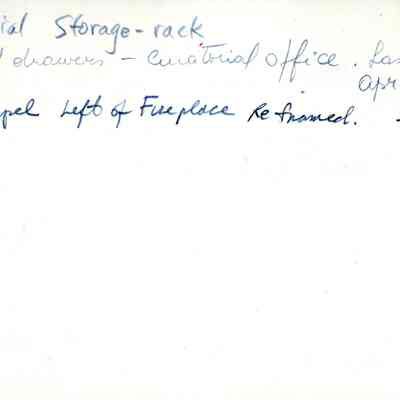 ial Storage-rack
drawers - Curatorial office.
apr
pel Left of Fireplace Re framed. -